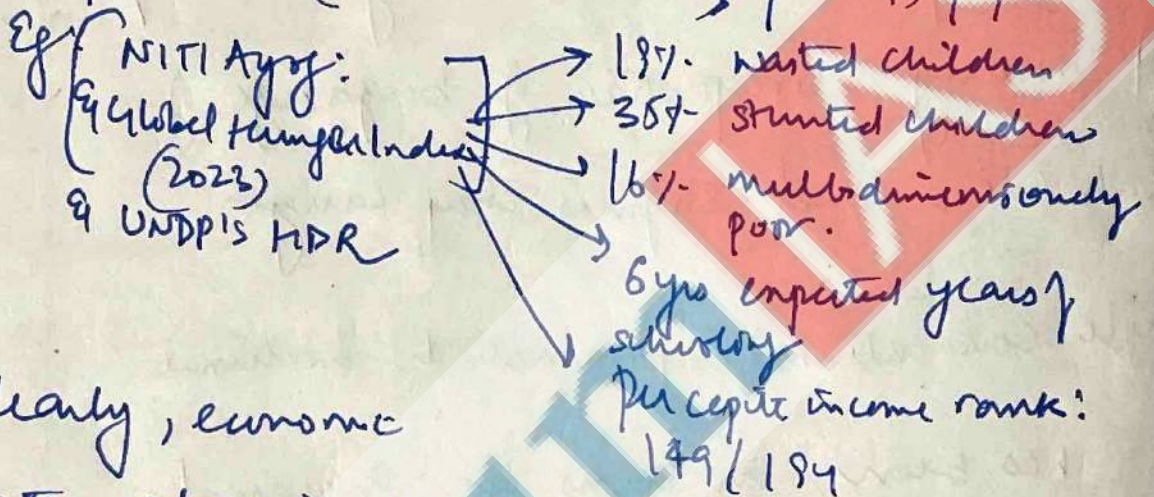 Eg NITI Ayog:
& Global Hunger Index
(2023)
& UNDP's HDR
19% wasted children
35% stunted children
16% multidimensionely
poor.
6 yrs expected years of
schooling
Per capita income rank:
149/194
learly, economic
IAS